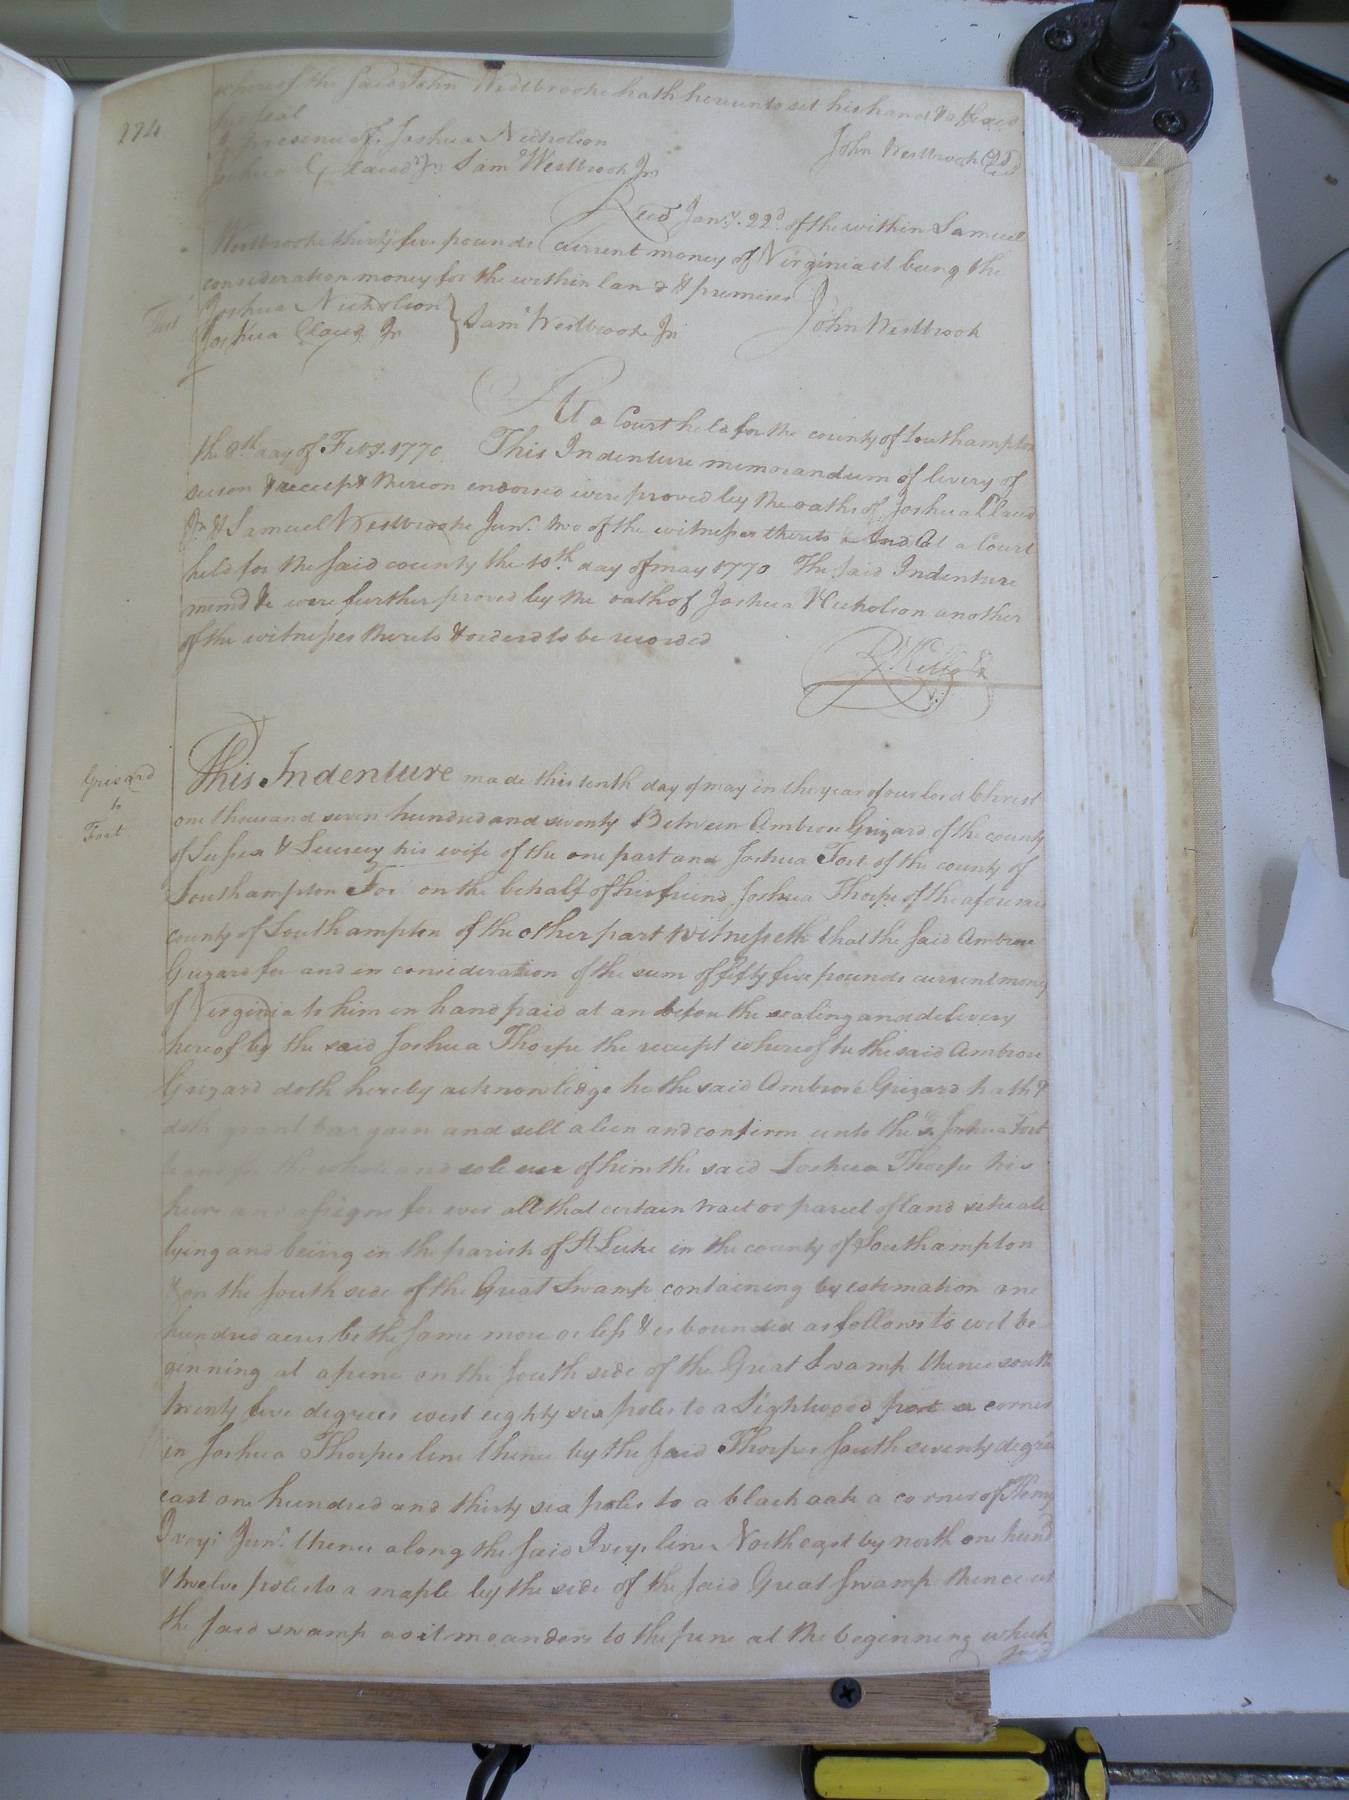 whereof the said John Westbrooke hath hereunto set his hand & affixed
his seal
In presence of Joshua Nicholson
John Westbrook
Joshua Claud Jr. Sam Westbrook Jr
274
Recd Jany. 22d of the within Samuel
Westbrooke thirty five pounds current money of Virginia it being the
consideration money for the within land & premises
Test
Joshua Nicholson
Joshua Claud Jr
Sam Westbrook Jr
John Westbrook
At a Court held for the county of Southampton
the 8th day of Feby. 1770 This Indenture memorandum of livery of
seison & receipt thereon endorsed were proved by the oaths of Joshua Claud
Jr. & Samuel Westbrooke Junr. two of the witnesses thereto & And at a Court
held for the said county the 10th day of may 1770 The said Indenture
memd &c were further proved by the oath of Joshua Nicholson another
of the witnesses thereto & orderd to be recorded
Grizard
to
Fort
This Indenture made this tenth day of may in the year of our lord Christ
one thousand seven hundred and seventy Between Ambrose Grizard of the county
of Sussex & his wife of the one part and Joshua Fort of the county of
Southampton For on the behalf of his friend Joshua Thorpe of the aforesaid
county of Southampton of the other part witnesseth that the said Ambrose
Grizard for and in consideration of the sum of fifty five pounds current money
of Virginia to him in hand paid at an before the sealing and delivery
hereof by the said Joshua Thorpe the receipt whereof he the said Ambrose
Grizard doth hereby acknowledge he the said Ambrose Grizard hath &
doth grant bargain and sell alien and confirm unto the sd Joshua Fort
the whole and sole use of him the said Joshua Thorpe his
heirs and assigns for ever all that certain tract or parcel of land situate
lying and being in the parish of St Luke in the county of Southampton
& on the south side of the Great Swamp containing by estimation one
hundred acres be the same more or less & is bounded as follows to wit be
ginning at a pine on the south side of the Great Swamp thence south
twenty five degrees west eighty six poles to a Lightwood post a corner
in Joshua Thorpes line thence by the said Thorpes South seventy degrees
east one hundred and thirty six poles to a black oak a corner of Henry
Iveys Junr. thence along the said Iveys line North east by north one hund
& twelve poles to a maple by the side of the said Great Swamp thence up
the said swamp as it meanders to the pine at the beginning which